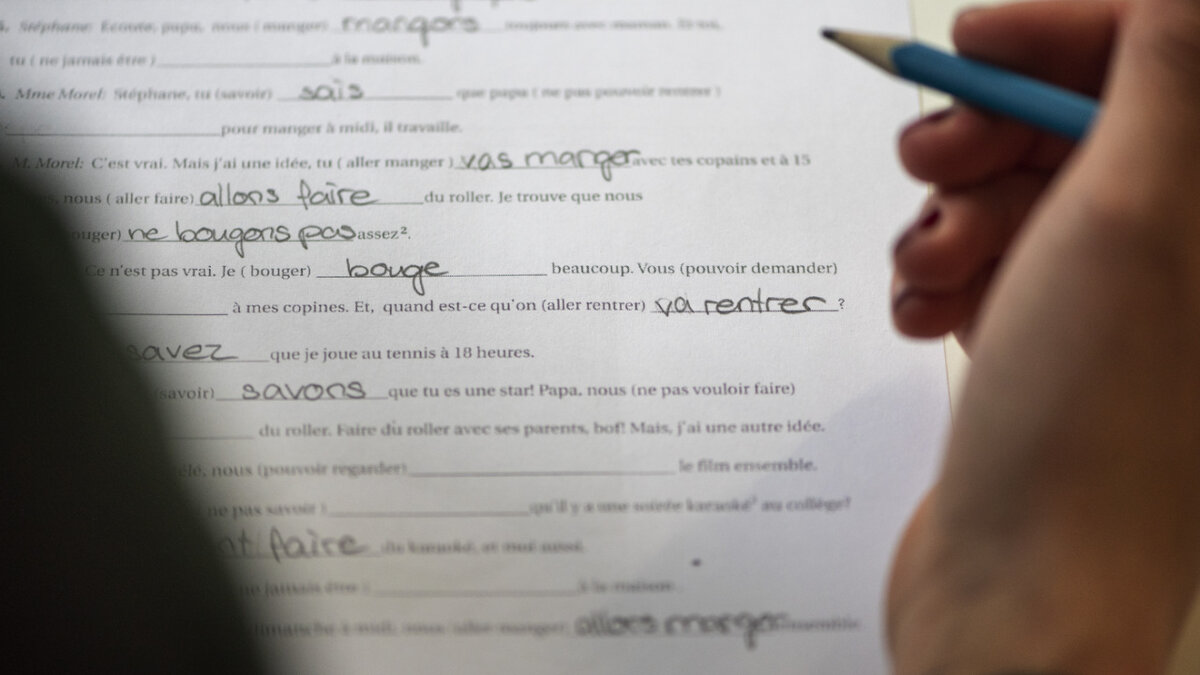 Stéphane: Ecoute, papa, nous (manger) mangons toujours avec maman. Et toi,
tu ( ne jamais être ) ____ à la maison.
Mme Morel: Stéphane, tu (savoir) sais que papa ( ne pas pouvoir rentrer )
____ pour manger à midi, il travaille.
M. Morel: C'est vrai. Mais j'ai une idée, tu ( aller manger ) vas manger avec tes copains et à 15
nous ( aller faire) allons faire du roller. Je trouve que nous
ouger) ne bougons pas assez².
Ce n'est pas vrai. Je ( bouger) bouge beaucoup. Vous (pouvoir demander)
____ à mes copines. Et, quand est-ce qu'on (aller rentrer) va rentrer ?
savez que je joue au tennis à 18 heures.
(savoir) savons que tu es une star! Papa, nous (ne pas vouloir faire)
____ du roller. Faire du roller avec ses parents, bof! Mais, j'ai une autre idée.
élé, nous (pouvoir regarder) ____ le film ensemble.
ne pas savoir ) ____ qu'il y a une soirée karaoké³ au collège?
nt faire du karaoké, et moi aussi.
ne jamais être ) ____ à la maison.
dimanche à midi, nous (aller manger) allons manger ensemble